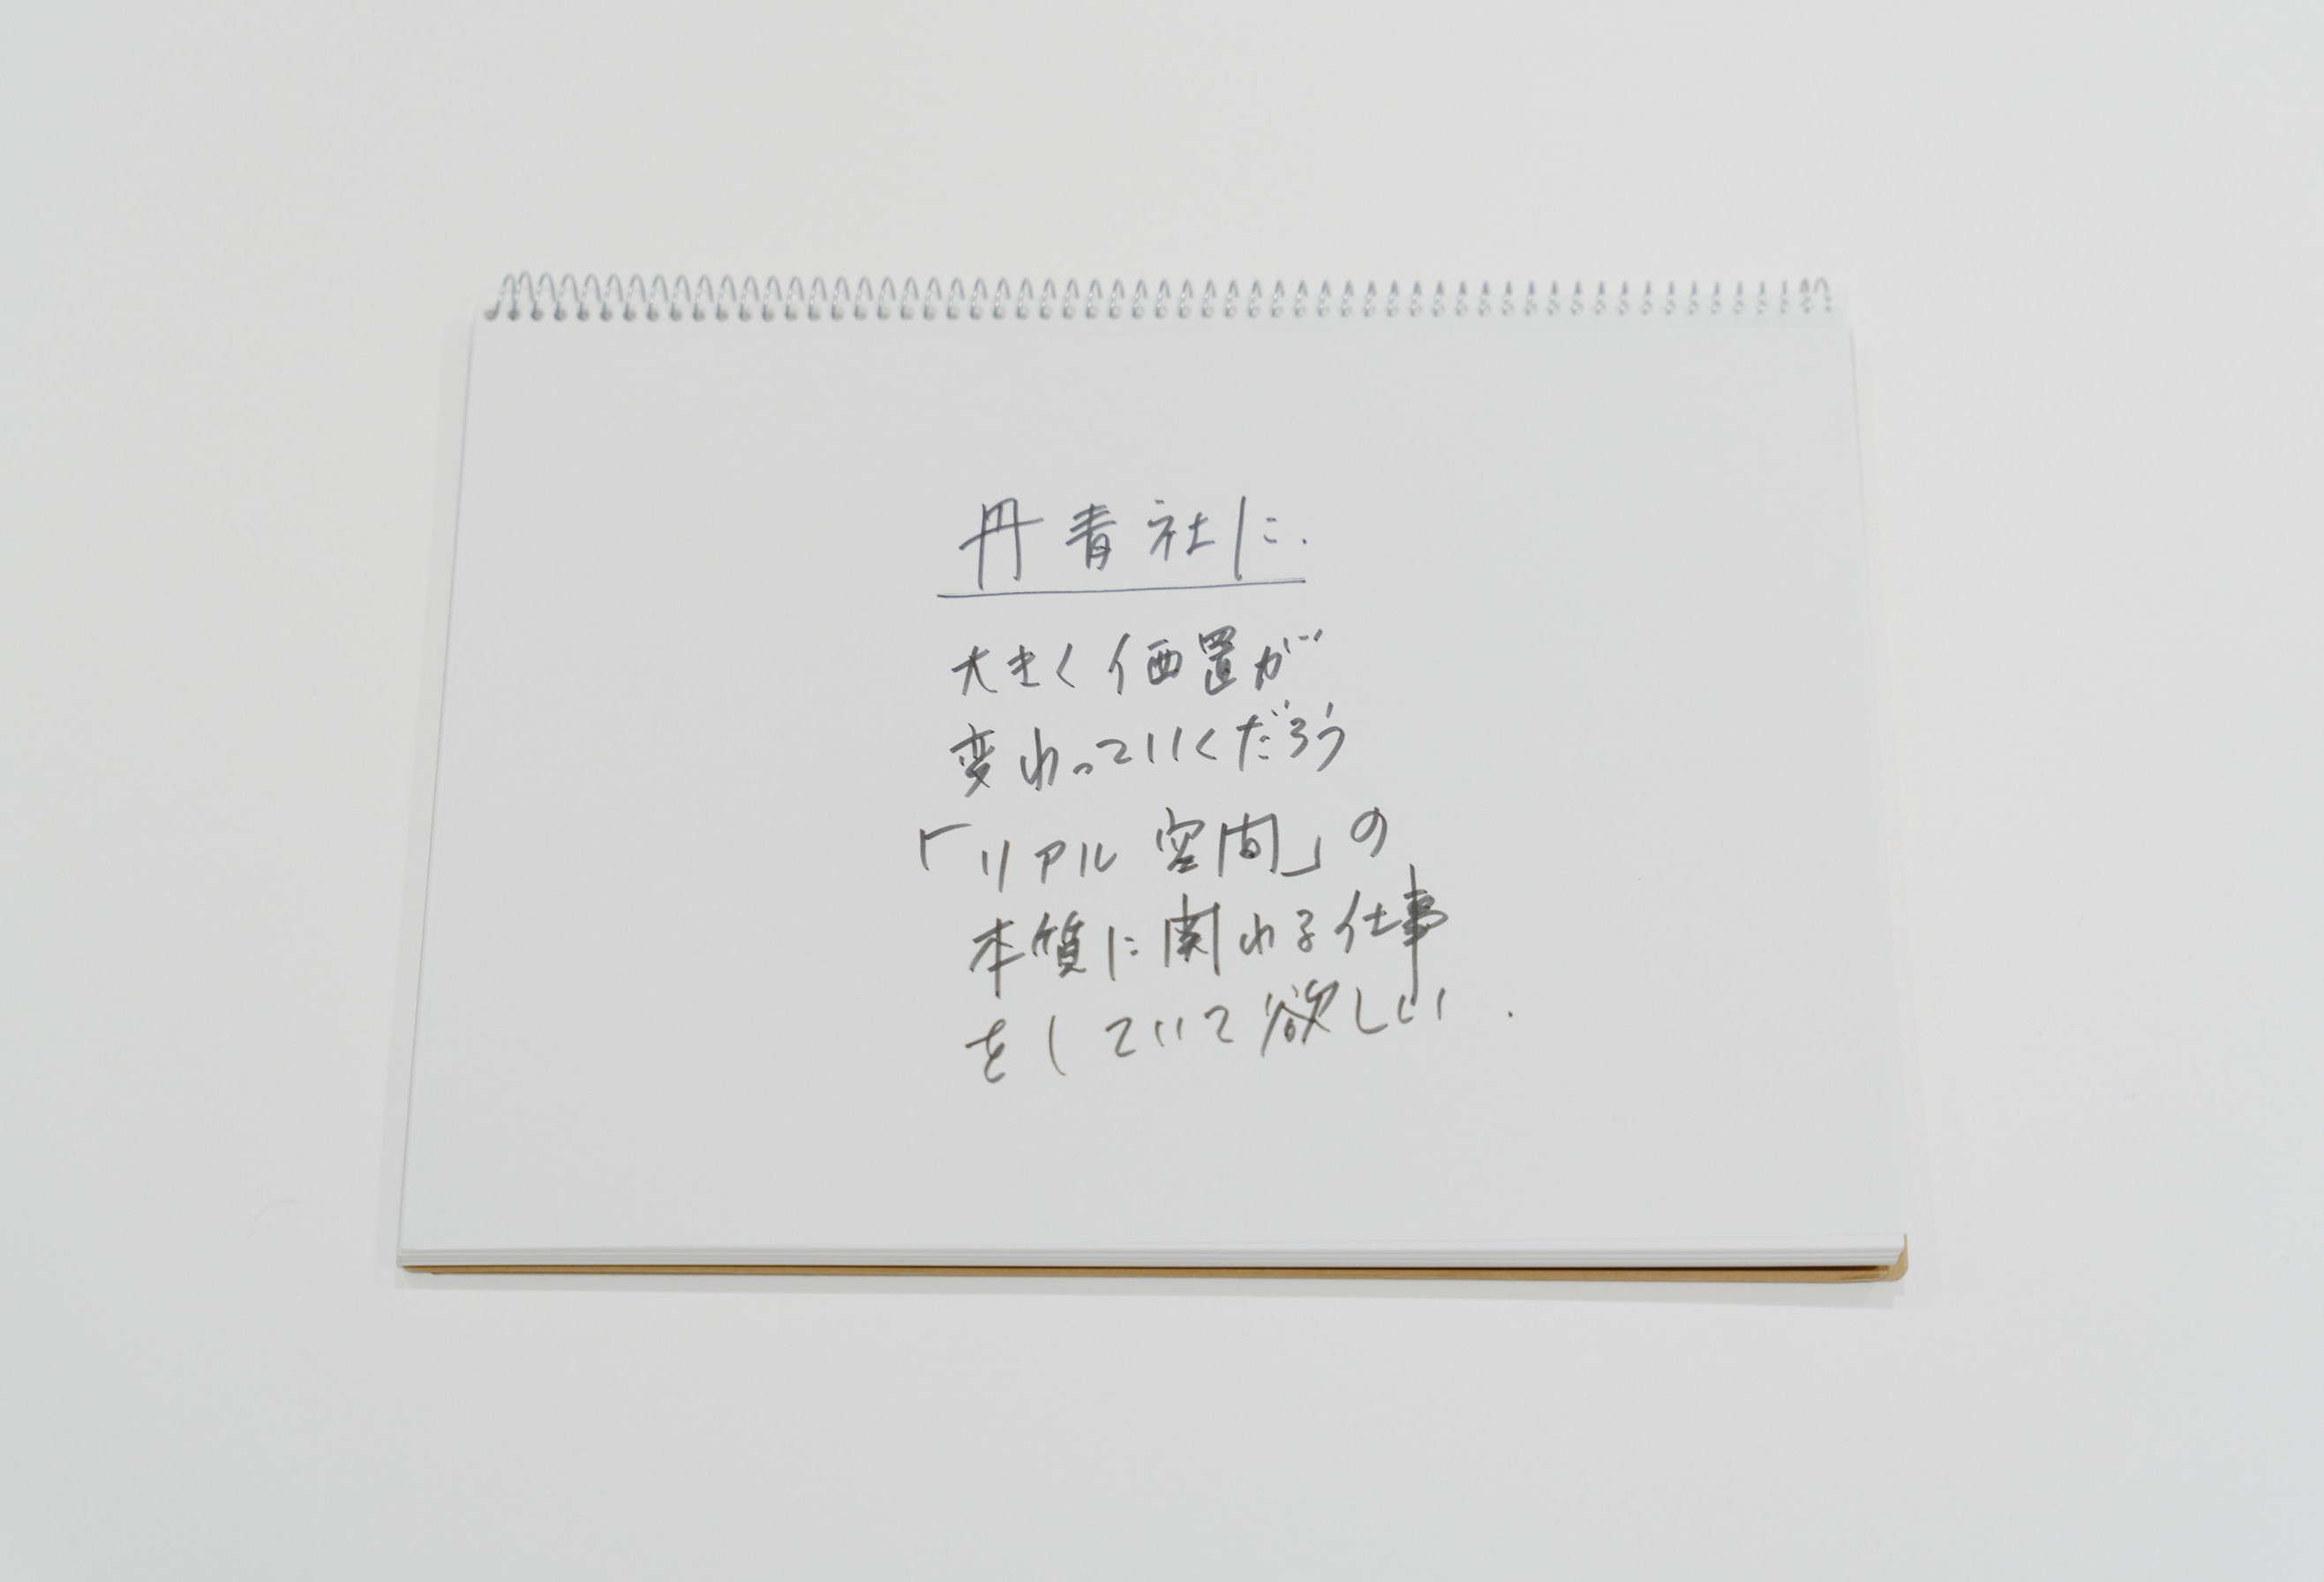 丹青社に.
大きく価置が
変わっていくだろう
「リアル空間」の
本質に関われる仕事
をしていて欲しい.